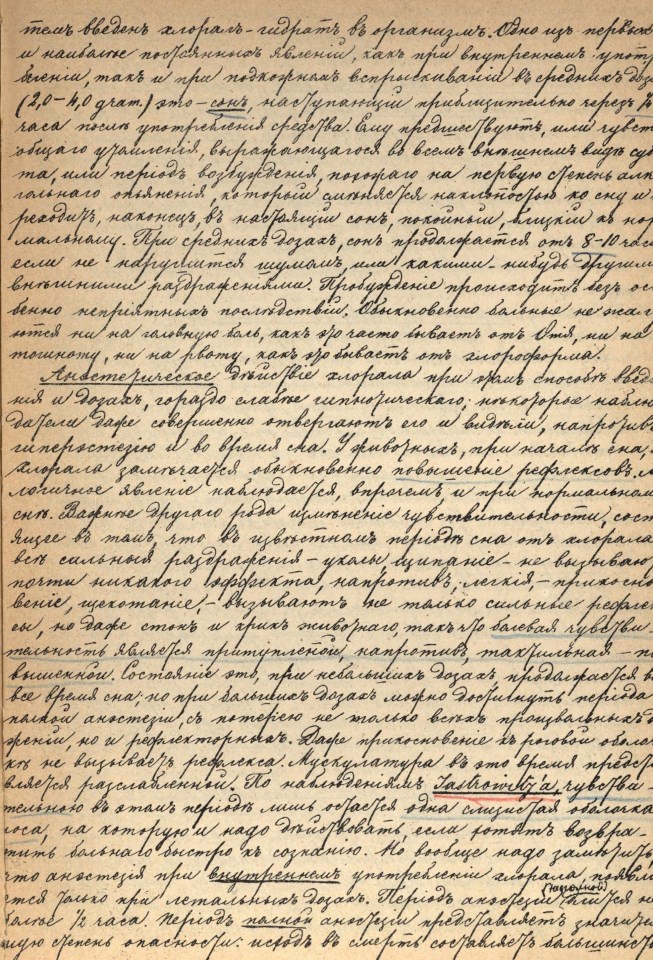 темъ введенъ хлоралъ-гидратъ въ организмъ. Одно изъ первыхъ
и наиболѣе постоянныхъ явленій, какъ при внутреннемъ употр
бленіи, такъ и при подкожныхъ вспрыскиваніи въ среднихъ доза
(2,0–4,0 грам.) это – сонъ, наступающій приблизительно черезъ ½
часа послѣ употребленія средства. Ему предшествуютъ, или чувст
общаго утомленія, выражающагося во всемъ внѣшнемъ видѣ суб
та, или періодъ возбужденія, похожаго на первую степень алко
гольнаго опьяненія, который смѣняется наклонностью ко сну и п
реходитъ, наконецъ, въ настоящій сонъ, покойный, близкій къ нор
мальному. При среднихъ дозахъ, сонъ продолжается отъ 8–10 час
если не нарушится шумомъ, или какими-нибудь другими
внѣшними раздраженіями. Пробужденіе происходитъ безъ осо
бенно непріятныхъ послѣдствій. Обыкновенно больные не жал
уются ни на головную боль, какъ это часто бываетъ отъ Опія, ни на
тошноту, ни на рвоту, какъ это бываетъ отъ хлороформа.
Анэстетическое дѣйствіе хлорала при этомъ способѣ введе
нія и дозахъ, гораздо слабѣе гипнотическаго; нѣкоторые наблю
датели даже совершенно отвергаютъ его и видѣли, напротивъ
гиперэстезію и во время сна. У животныхъ, при началѣ сна,
хлорала замѣчается обыкновенно повышеніе рефлексовъ. А
логичное явленіе наблюдается, впрочемъ и при нормальномъ
снѣ. Важнѣе другаго рода измѣненіе чувствительности, сост
ящее въ томъ, что въ извѣстномъ періодѣ сна отъ хлорала
всѣ сильныя раздраженія – уколы, щипаніе – не вызываю
почти никакого эффекта, напротивъ, легкія, – прикосно
веніе, щекотаніе, – вызываютъ не только сильные рефлек
сы, но даже стонъ и крикъ животнаго, такъ что болевая чувстви-
тельность является притупленной, напротивъ, тактильная – по
вышенной. Состояніе это, при небольшихъ дозахъ, продолжается в
все время сна; но при большихъ дозахъ можно достигнуть періода
полной анэстезіи, съ потерею не только всѣхъ произвольныхъ д
женій, но и рефлекторныхъ. Даже прикосновеніе къ роговой оболоч
кѣ не вызываетъ рефлекса. Мускулатура въ это время предст
вляется разслабленной. По наблюденіямъ Jastrowitz'a, чувстви-
тельною въ этомъ періодѣ лишь остается одна слизистая оболочка
носа, на которую и надо дѣйствовать, если хотятъ возвра-
тить больнаго быстро къ сознанію. Но вообще надо замѣтить
что анэстезія при внутреннемъ употребленіи хлорала, появля
ется только при летальныхъ дозахъ. Періодъ анэстезіи (неполной) длится н
болѣе ½ часа. Періодъ полной анэстезіи представляетъ значител
ную степень опасности: исходъ въ смерть составляетъ большинств